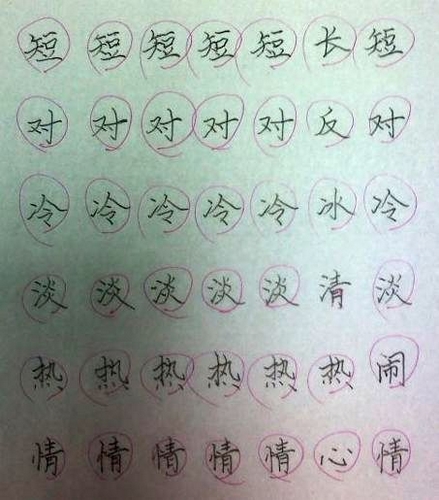 短短短短短长短
对对对对对反对
冷冷冷冷冷冰冷
淡淡淡淡淡清淡
热热热热热热闹
情情情情情心情